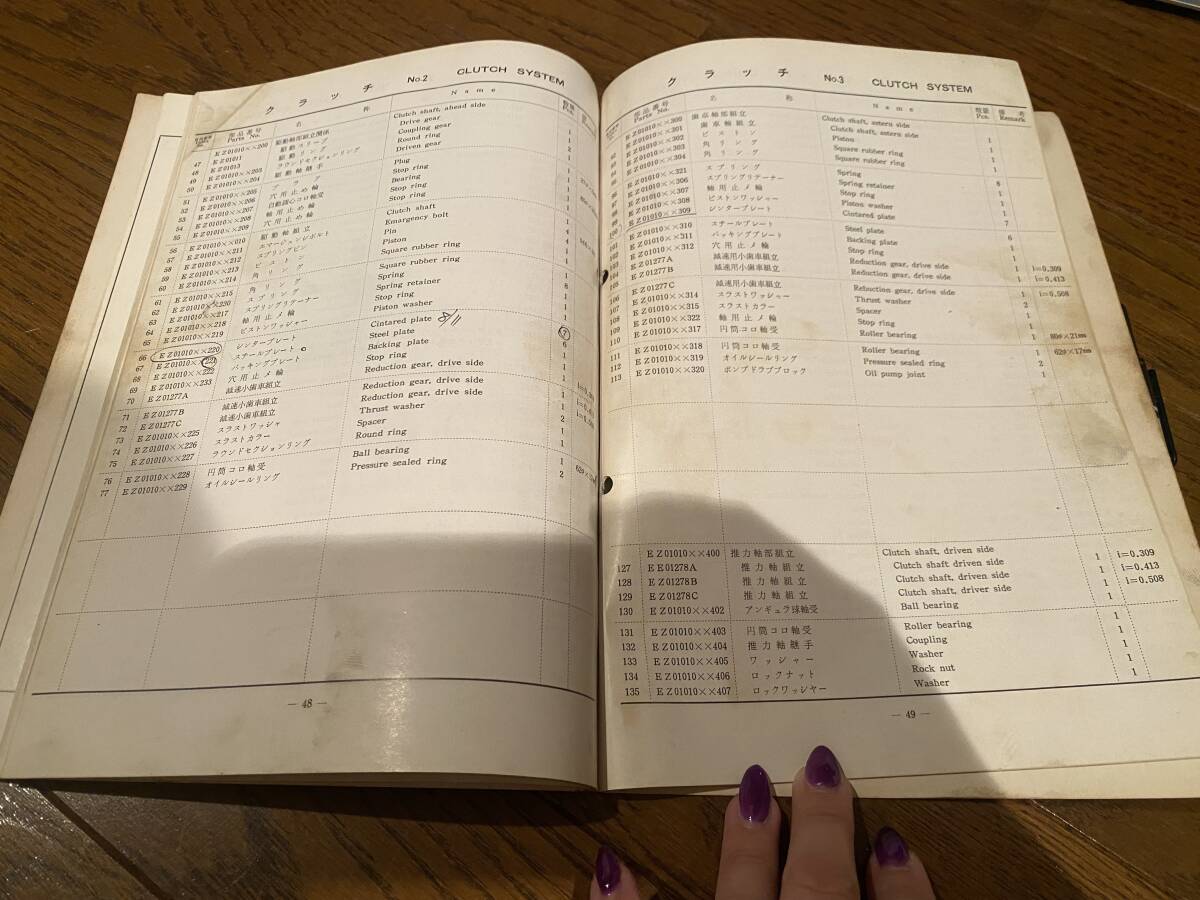 クラッチ No.2 CLUTCH SYSTEM
部品番号 Parts No. 名称 Name 数量 Pcs.
EZ01010××200 駆動軸部組立関係 Clutch shaft, ahead side
47 EZ01011 駆動スリーブ Drive gear 1
48 EZ01013 駆動リング Coupling gear 1
49 EZ01010××203 ラウンドセクションリング Round ring 2
50 EZ01010××204 駆動軸継手 Driven gear 1
51 EZ01010××205 プラグ Plug 1
52 EZ01010××206 穴用止め輪 Stop ring 1
53 EZ01010××207 自動調心コロ軸受 Bearing 1
54 EZ01010××208 軸用止め輪 Stop ring 1
55 EZ01010××209 穴用止め輪 Stop ring 1
56 EZ01010××010 駆動軸組立 Clutch shaft 1
57 EZ01010××211 エマージェンシボルト Emargency bolt 4
58 EZ01010××212 スプリングピン Pin 4
59 EZ01010××213 ピストン Piston 1
60 EZ01010××214 角リング Square rubber ring 1
61 EZ01010××215 角リング Square rubber ring 1
62 EZ01010××230 スプリング Spring 8
63 EZ01010××217 スプリングリテーナー Spring retainer 1
64 EZ01010××218 軸用止メ輪 Stop ring 1
65 EZ01010××219 ピストンワッシャー Piston washer 1
66 EZ01010××220 シンタープレート Cintared plate 7
67 EZ01010××221 スチールプレート Steel plate 6
68 EZ01010××222 パッキングプレート Backing plate 1
69 EZ01010××233 穴用止メ輪 Stop ring 1
70 EZ01277A 減速小歯車組立 Reduction gear, drive side 1
71 EZ01277B 減速小歯車組立 Reduction gear, drive side 1
72 EZ01277C 減速小歯車組立 Reduction gear, drive side 1
73 EZ01010××225 スラストワッシャ Thrust washer 2
74 EZ01010××226 スラストカラー Spacer 1
75 EZ01010××227 ラウンドセクションリング Round ring 1
76 EZ01010××228 円筒コロ軸受 Ball bearing 1
77 EZ01010××229 オイルシールリング Pressure sealed ring 2
— 48 —
クラッチ No.3 CLUTCH SYSTEM
部品番号 Parts No. 名称 Name 数量 Pcs. 備考 Remark
EZ01010××300 Clutch shaft, astern side
EZ01010××301 Clutch shaft, astern side 1
EZ01010××302 ピストン Piston 1
EZ01010××303 角リング Square rubber ring 1
EZ01010××304 角リング Square rubber ring 1
EZ01010××321 スプリング Spring 8
EZ01010××306 スプリングリテーナー Spring retainer 1
EZ01010××307 軸用止メ輪 Stop ring 1
EZ01010××308 ピストンワッシャー Piston washer 1
100 EZ01010××309 シンタープレート Cintared plate 7
101 EZ01010××310 スチールプレート Steel plate 6
102 EZ01010××311 パッキングプレート Backing plate 1
103 EZ01010××312 穴用止メ輪 Stop ring 1
104 EZ01277A 減速用小歯車組立 Reduction gear, drive side 1 i=0.309
105 EZ01277B 減速用小歯車組立 Reduction gear, drive side 1 i=0.413
106 EZ01277C 減速用小歯車組立 Rebuction gear, drive side 1 i=0.508
107 EZ01010××314 スラストワッシャー Thrust washer 2
108 EZ01010××315 スラストカラー Spacer 1
109 EZ01010××322 軸用止メ輪 Stop ring 1
110 EZ01010××317 円筒コロ軸受 Roller bearing 1 80φ×21mm
111 EZ01010××318 円筒コロ軸受 Roller bearing 1 62φ×17mm
112 EZ01010××319 オイルシールリング Pressure sealed ring 2
113 EZ01010××320 ポンプドラブブロック Oil pump joint 1
EZ01010××400 推力軸部組立 Clutch shaft, driven side
127 EE01278A 推力軸組立 Clutch shaft driven side 1 i=0.309
128 EZ01278B 推力軸組立 Clutch shaft, driven side 1 i=0.413
129 EE01278C 推力軸組立 Clutch shaft, driver side 1 i=0.508
130 EZ01010××402 アンギュラ球軸受 Ball bearing 1
131 EZ01010××403 円筒コロ軸受 Roller bearing 1
132 EZ01010××404 推力軸継手 Coupling 1
133 EZ01010××405 ワッシャー Washer 1
134 EZ01010××406 ロックナット Rock nut 1
135 EZ01010××407 ロックワッシヤー Washer 1
— 49 —